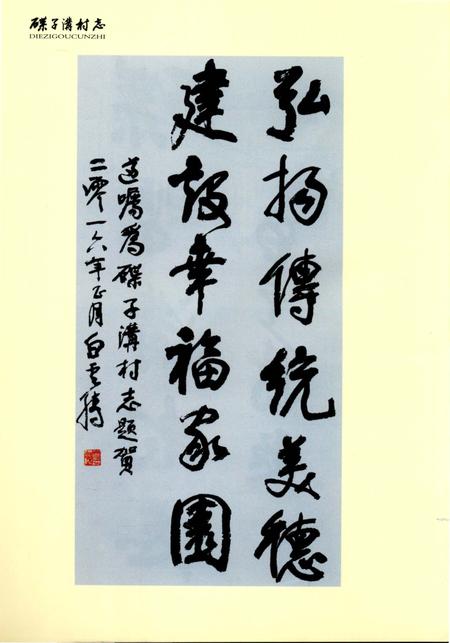 碟子溝村志
DIEZIGOUCUNZHI
弘揚傳統美德
建設幸福家園
遵嘱為碟子溝村志題賀
二零一六年正月白雲騰